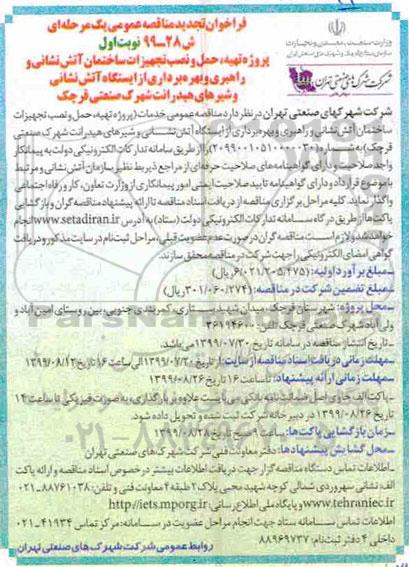 فراخوان تجدید مناقصه عمومی یک مرحله ای
ش ۲۸-۹۹ نوبت اول
پروژه تهیه، حمل و نصب تجهیزات ساختمان آتش نشانی و
راهبری و بهره برداری از ایستگاه آتش نشانی
و شیرهای هیدرانت شهرک صنعتی قرچک
وزارت صنعت، معدن و تجارت
شرکت شهرکهای صنعتی تهران
شرکت شهرکهای صنعتی تهران در نظر دارد مناقصه عمومی خدمات (پروژه تهیه، حمل و نصب تجهیزات
ساختمان آتش نشانی و راهبری و بهره برداری از ایستگاه آتش نشانی و شیرهای هیدرانت شهرک صنعتی
قرچک) به شماره ( ) را از طریق سامانه تدارکات الکترونیکی دولت به پیمانکار
واجد صلاحیت و دارای گواهینامه های صلاحیت حرفه ای از مراجع ذیربط نظیر سازمان آتش نشانی و مرتبط
با موضوع قرارداد و دارای گواهینامه تایید صلاحیت ایمنی امور پیمانکاری از وزارت تعاون، کار و رفاه اجتماعی
واگذار نماید. کلیه مراحل برگزاری مناقصه از دریافت اسناد مناقصه تا ارائه پیشنهاد مناقصه گران و بازگشایی
پاکت ها از طریق درگاه سامانه تدارکات الکترونیکی دولت (ستاد) به آدرس www.setadiran.ir انجام
خواهد شد و لازم است مناقصه گران در صورت عدم عضویت قبلی، مراحل ثبت نام در سایت مذکور و دریافت
گواهی امضای الکترونیکی را جهت شرکت در مناقصه محقق سازند.
-مبلغ برآورد اولیه: (۶/۰۲۱/۲۰۵/۴۷۵) ریال.
-مبلغ تضمین شرکت در مناقصه: (۳۰۱/۰۶۰/۲۷۴ ریال)
-محل پروژه: شهرستان قرچک، میدان شهید ستاری، کمربندی جنوبی، بین روستای امین آباد و
ولی آباد شهرک صنعتی قرچک تلفن: ۳۶۱۱۴۶۰۰
-تاریخ انتشار مناقصه در سامانه تاریخ ۱۳۹۹/۰۷/۳۰ می باشد.
-مهلت زمانی دریافت اسناد مناقصه از سایت: از تاریخ ۱۳۹۹/۰۷/۳۰ الی ساعت ۱۶ تاریخ ۱۳۹۹/۰۸/۱۲
-مهلت زمانی ارائه پیشنهاد: تا ساعت ۱۶ تاریخ ۱۳۹۹/۰۸/۲۶
-پاکت الف حاوی اصل ضمانت نامه بانکی می بایست علاوه بر بارگذاری، به صورت فیزیکی تا ساعت ۱۴
تاریخ ۱۳۹۹/۰۸/۲۶ در دبیرخانه شرکت ثبت شده و تحویل داده شود.
-زمان بازگشایی پاکت ها: ساعت صبح تاریخ ۱۳۹۹/۰۸/۲۸
-محل گشایش پیشنهادها: دفتر معاونت فنی شرکت شهرک های صنعتی تهران
-اطلاعات تماس دستگاه مناقصه گزار جهت دریافت اطلاعات بیشتر در خصوص اسناد مناقصه و ارائه پاکت
الف: نشانی سهروردی شمالی کوچه شهید محبی پلاک ۲ طبقه ۴ معاونت فنی و تلفن: ۸۸۷۶۱۰۳۸-۰۲۱
www.tehraniec.ir و پایگاه ملی اطلاع رسانی: http://iets.mporg.ir
اطلاعات تماس سامانه ستاد جهت انجام مراحل عضویت در سامانه: مرکز تماس ۴۱۹۳۴-۰۲۱
داخلی ۴ دفتر ثبت نام: ۸۸۹۶۹۷۳۷
روابط عمومی شرکت شهرک های صنعتی تهران